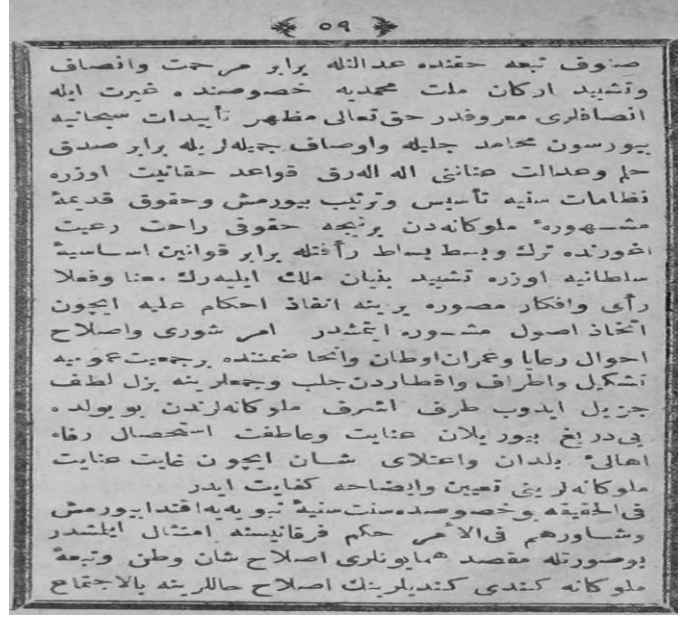 ٥٩
صنوف تبعه حقنده عدالتله برابر مرحمت وانصاف
وتشييد اركان ملت محمديه خصوصنده غيرت ايله
انصافلرى معروفدر حق تعالى مظهر تأييدات سبحانيه
بيورسون محامد جليله واوصاف جميله‌لريله برابر صدق
حلم وعدالت عناننى اله اله‌رق قواعد حقانيت اوزره
نظامات سنيه تأسيس وترتيب بيورمش وحقوق قديمۀ
مشهورۀ ملوكانه‌دن برنيجه حقوقى راحت رعيت
اغورنده ترك وبسط بساط رأفتله برابر قوانين اساسيۀ
سلطانيه اوزره تشييد بنيان ملك ايليه‌رك معنا وفعلا
رأى وافكار مصوره يرينه انفاذ احكام عليه ايچون
اتخاذ اصول مشوره ايتمشدر امر شورى واصلاح
احوال رعايا وعمران اوطان وانحا ضمننده برجمعيت عموميه
تشكيل واطراف واقطاردن جلب وجمعلرينه بزل لطف
جزيل ايدوب طرف اشرف ملوكانه‌لرندن بو يولده
بى دريغ بيوريلان عنايت وعاطفت استحصال رفاه
اهالئ بلدان واعتلاى شان ايچون غايت عنايت
ملوكانه‌لرينى تعيين وايضاحه كفايت ايدر
فى الحقيقه بو خصوصده سنت سنيۀ نبويه‌يه اقتدا بيورمش
وشاورهم فى الأمر حكم فرقانيسنه امتثال ايلمشدر
بوصورتله مقصد همايونلرى اصلاح شان وطن وتبعۀ
ملوكانه كندى كنديلرينك اصلاح حاللرينه بالاجتماع